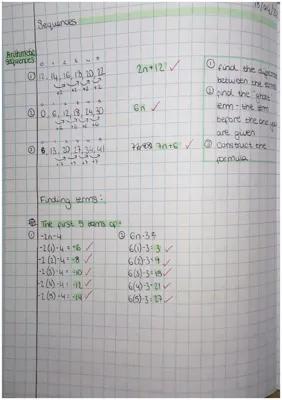 Sequences
Arithmetic sequences
0 1 2 3 4 5
① 12, 14, 16, 18, 20, 22
+2 +2 +2 +2 +2
2n+12 ✓
② 0, 6, 12, 18, 24, 30
+6 +6 +6 +6 +6
6n ✓
③ 6, 13, 20, 27, 34, 41
7n+6 ✓
① find the difference
between the terms
② find the "start
term - the term
before the one you
are given
③ construct the
formula
Finding terms:
The first 5 terms of:
① -2n-4
-2(1)-4=-6 ✓
-2(2)-4=-8 ✓
-2(3)-4=-10 ✓
-2(4)-4=-12 ✓
-2(5)-4=-14 ✓
② 6n-3
6(1)-3=3 ✓
6(2)-3=9 ✓
6(3)-3=15 ✓
6(4)-3=21 ✓
6(5)-3=27 ✓